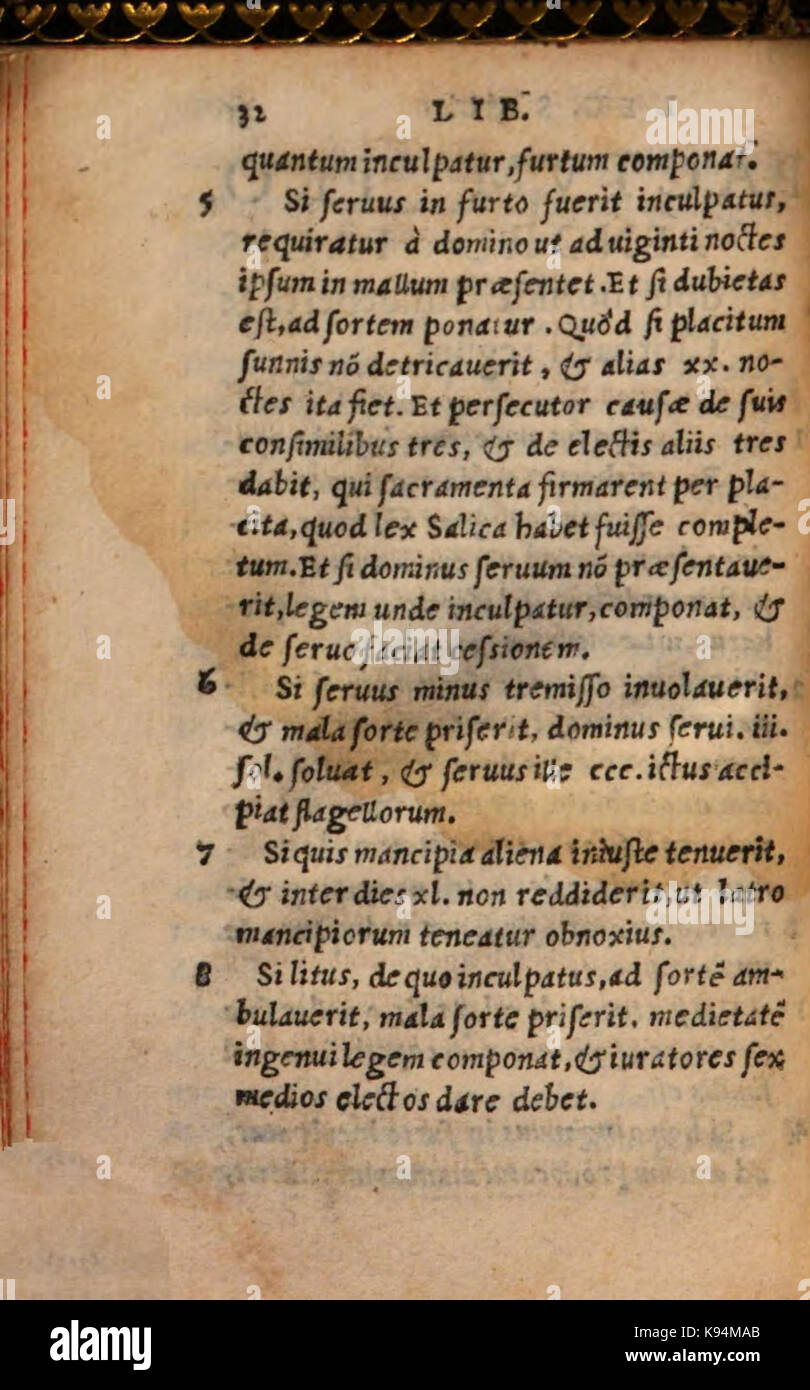 32 LIB.
quantum inculpatur, furtum componat.
5 Si seruus in furto fuerit inculpatus,
requiratur à domino ut ad uiginti noctes
ipsum in mallum præsentet. Et si dubietas
est, ad sortem ponatur. Quòd si placitum
sunnis nō detricauerit, & alias xx. no-
ctes ita fiet. Et persecutor causæ de suis
consimilibus tres, & de electis aliis tres
dabit, qui sacramenta firmarent per pla-
cita, quod lex Salica habet fuisse comple-
tum. Et si dominus seruum nō præsentaue-
rit, legem unde inculpatur, componat, &
de seruo faciat cessionem.
6 Si seruus minus tremisso inuolauerit,
& mala sorte priserit, dominus serui. iii.
sol. soluat, & seruus ille ccc. ictus acci-
piat flagellorum.
7 Si quis mancipia aliena iniuste tenuerit,
& inter dies xl. non reddiderit, ut latro
mancipiorum teneatur obnoxius.
8 Si litus, de quo inculpatus, ad sortē am-
bulauerit, mala sorte priserit. medietatē
ingenui legem componat, & iuratores sex
medios electos dare debet.
alamy
a
alamy stock photo
K94MAB
www.alamy.com